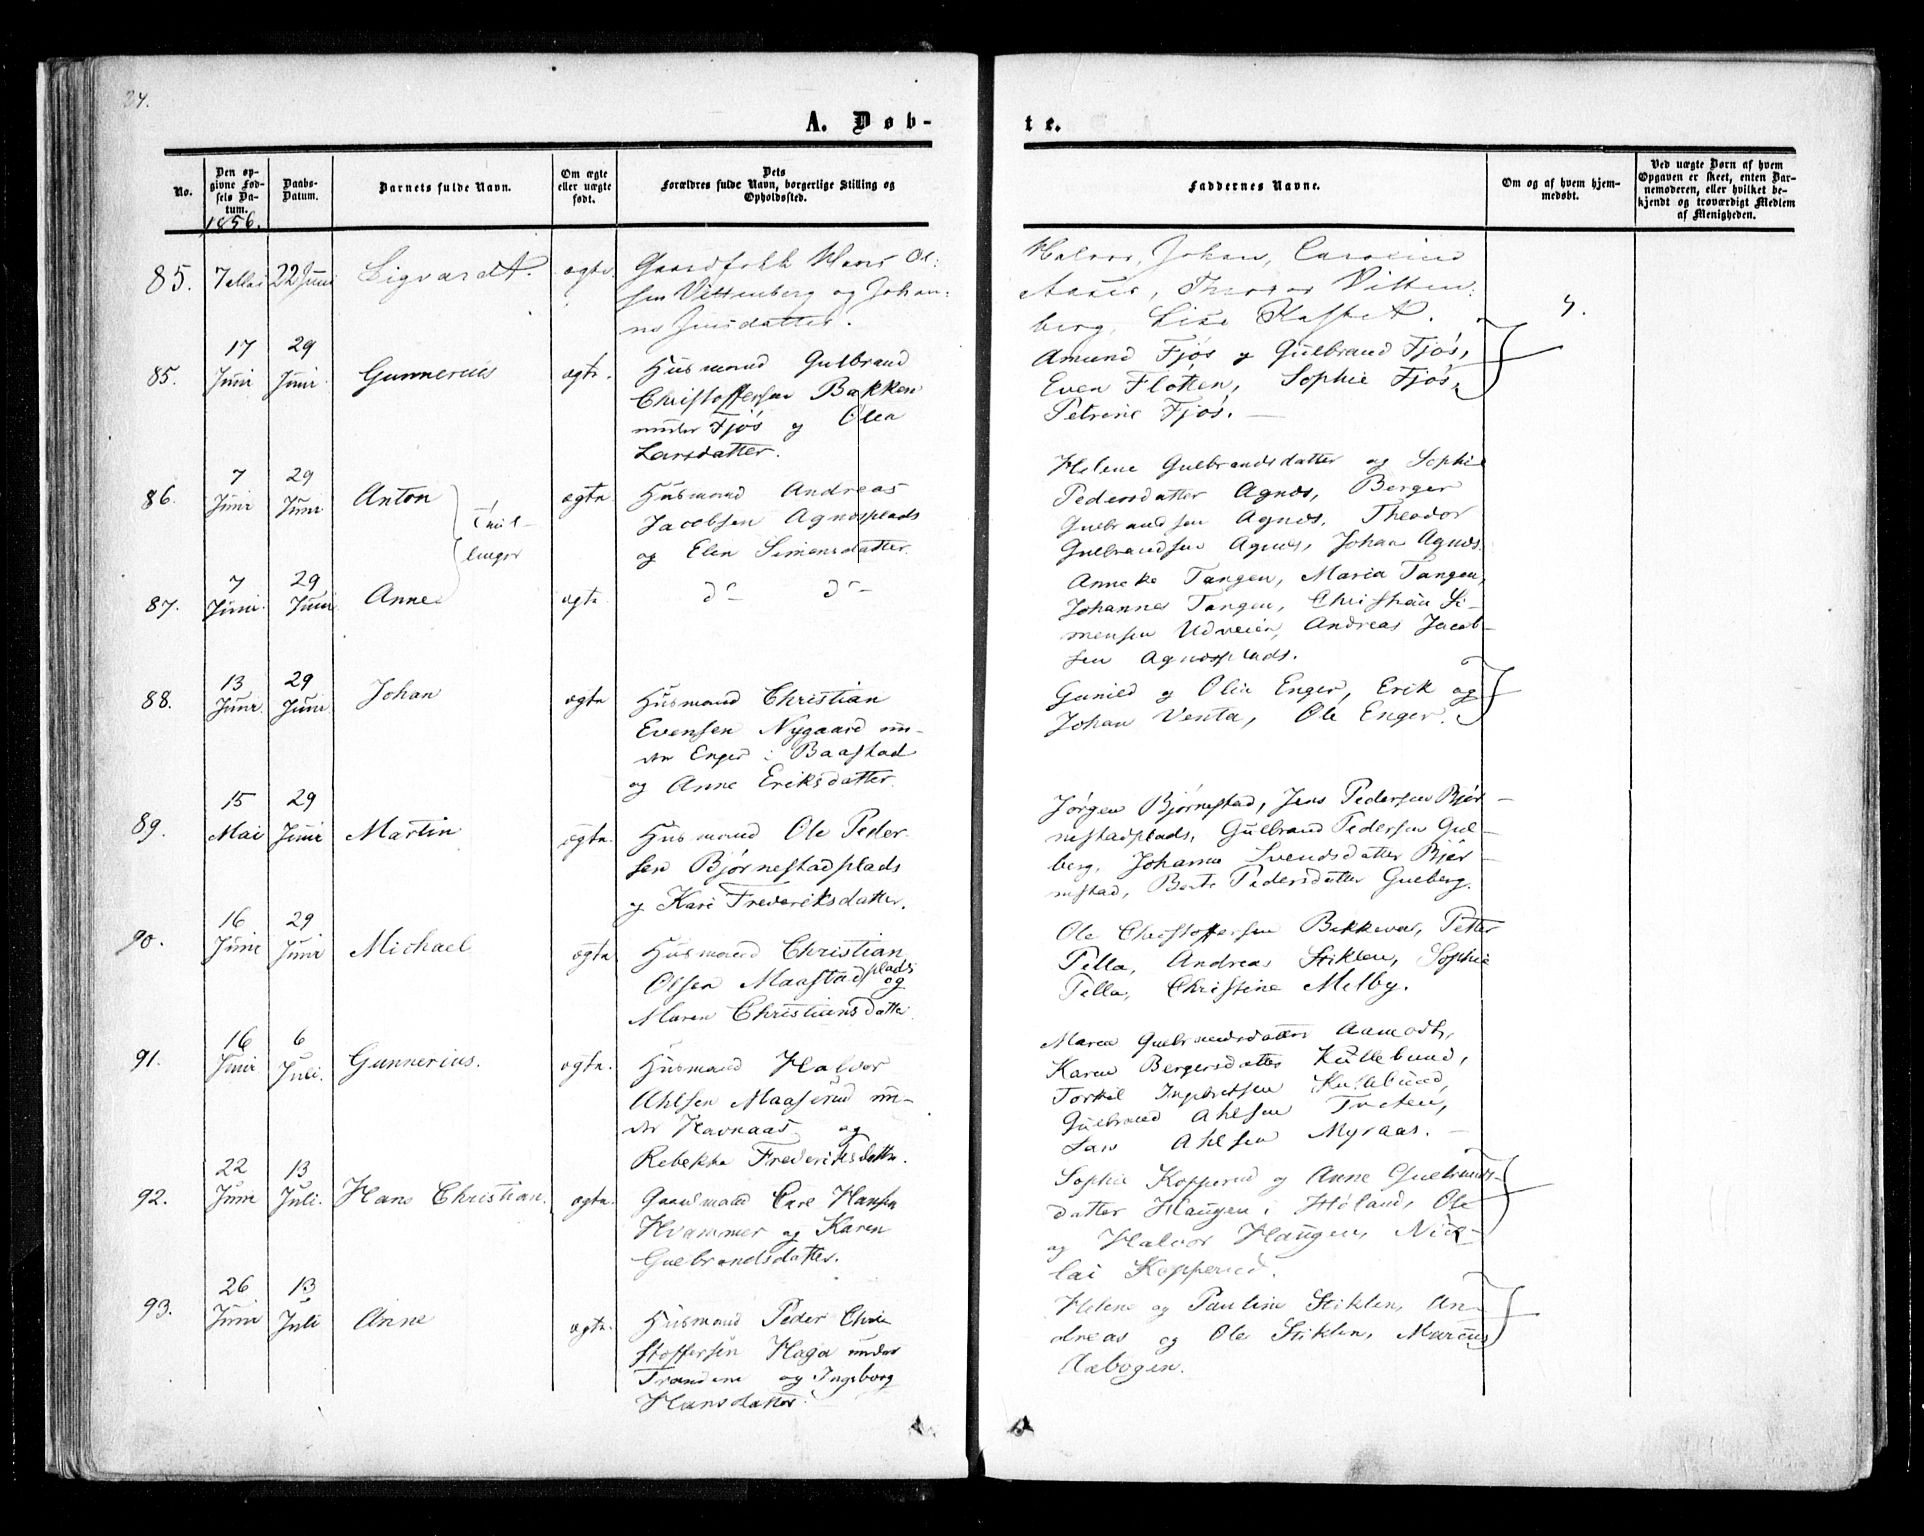 24.
A. Døb-
te.
No.
Den op-
givne Fød-
sels Da-
tum.
1856.
Daabs-
Datum.
Barnets fulde Navn.
Om ægte
eller uægte
født.
Dets
Forældres fulde Navn, borgerlige Stilling og
Opholdssted.
Faddernes Navne.
Om og af hvem hjem-
medøbt.
Ved uægte Børn af hvem
Opgaven er skeet, enten Bar-
nemoderen, eller hvilket be-
kjendt og troværdigt Medlem
af Menigheden.
85. 7 Mai 22 Juni Sigvardt. ægte.
Gaardfolk Hans Ol-
sen Vittenberg og Johan-
ne Jensdatter.
Halvor, Johan, Caroline
Aaser, Theodor Vitten-
berg, Lise Kastet.
85. 17 Juni 29 Juni. Gunnerius ægte.
Husmand Gulbrand
Christoffersen Bakken
under Fjøs og Olea
Larsdatter.
Amund Fjøs og Gulbrand Fjøs,
Even Fløtten, Sophie Fjøs,
Petrine Fjøs. —
86. 7 Juni 29 Juni Anton Tvil-
linger ægte
Husmand Andreas
Jacobsen Agnæsplads
og Elen Simensdatter.
Helene Gulbrandsdatter og Sophie
Pedersdatter Agnæs, Berger
Gulbrandsen Agnæs, Theodor
Gulbrandsen Agnæs, Johan Agnæs.
87. 7 Juni. 29 Juni Anne ægte.
do do
Anneke Tangen, Maria Tangen,
Johannes Tangen, Christian Si-
mensen Udveien, Andreas Jacob-
sen Agnæsplads.
88. 13 Juni. 29 Juni Johan ægte
Husmand Christian
Evensen Nygaard un-
der Enger i Baastad
og Anne Eriksdatter.
Gunild og Olia Enger, Erik og
Johan Venta, Ole Enger.
89. 15 Mai 29 Juni Martin ægte.
Husmand Ole Peder-
sen Bjørnestadplads
og Kari Frederiksdatter.
Jørgen Bjørnestad, Jens Pedersen Bjør-
nestadplads, Gulbrand Pedersen Gul-
berg, Johanne Svendsdatter Bjør-
nestad, Berte Pedersdatter Gulberg.
90. 16 Juni 29 Juni Michael ægte
Husmand Christian
Olsen Maastadplads og
Maren Christiansdatter.
Ole Christoffersen Bekkevar, Petter
Pella, Andreas Stiklen, Sophie
Pella, Christine Melby.
91. 16 Juni 6 Juli. Gunnerius. ægte.
Husmand Halvor
Ahlsen Maaserud un-
der Havnaas og
Rebekka Frederiksdatter.
Maren Gulbrandsdatter Aamodt,
Karen Bergersdatter Kullebund,
Torkil Ingebretsen Kullebund,
Gulbrand Ahlsen Tveten,
Lars Ahlsen Myraas. —
92. 22 Juni 13 Juli. Hans Christian. ægte.
Gaardmand Carl Hansen
Hvammer og Karen
Gulbrandsdatter.
Sophie Kopperud og Anne Gulbrands-
datter Haugen i Høland, Ole
og Halvor Haugen, Nico-
lai Kopperud.
93. 26 Juni 13 Juli Anne ægte.
Husmand Peder Chri-
stoffersen Haga under
Trandene og Ingeborg
Hansdatter.
Helene og Pauline Stiklen, An-
dreas og Ole Stiklen, Marcus
Habogen.